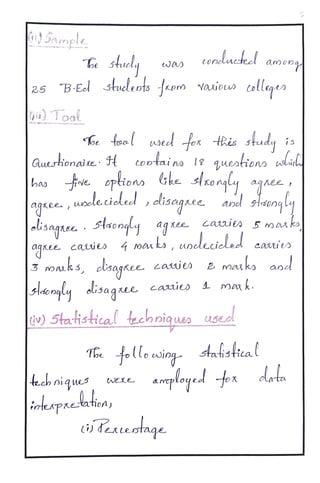 (ii) Sample
The study was conducted among
25 B.Ed students from various colleges
(iii) Tool
The tool used for this study is
Questionaire. It contains 18 questions which
has five options like strongly agree,
agree, undecided, disagree and strongly
disagree. Strongly agree carries 5 marks,
agree carries 4 marks, undecided carries
3 marks, disagree carries 2 marks and
strongly disagree carries 1 mark.
(iv) Statistical techniques used
The following statistical
techniques were employed for data
interpretation,
(i) Percentage